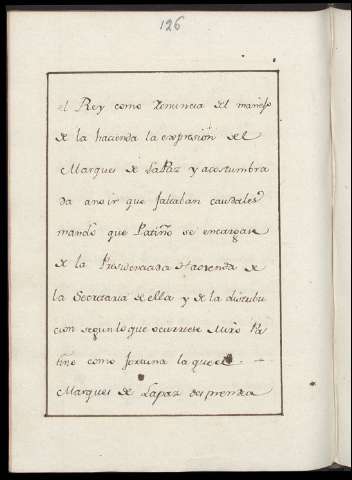 126
el Rey como renuncia del manejo
de la hacienda la expresion del
Marques de la Paz y acostumbra
da a no ir que faltaban caudales
mando que Patiño se encargase
de la Presidencia de Hacienda de
la Secretaria de ella y de la distribu
cion segun lo que ocurriese Miro Pa
tiño como fortuna la que el
Marques de Lapaz desprendia